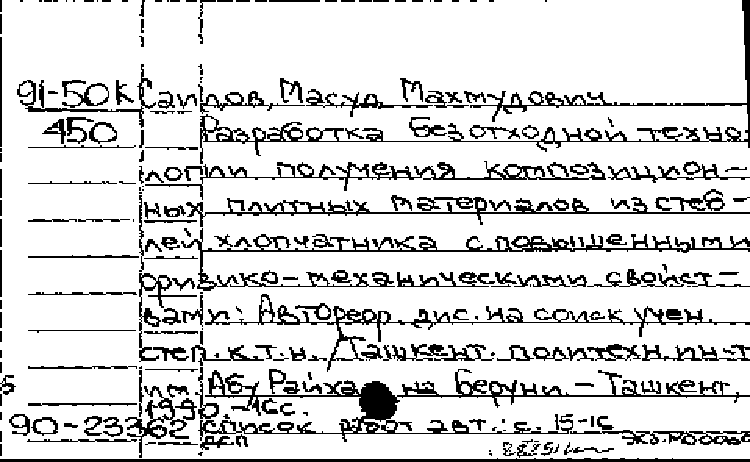 91-50К Саидов, Масуд Махмудович
450 Разработка безотходной техно-
логии получения композицион-
ных плитных материалов из стеб-
лей хлопчатника с повышенными
физико-механическими свойст-
вами: Автореф. дис. на соиск учен.
степ. к.т.н. / Ташкент. политехн. ин-т
им. Абу Райхана Беруни. - Ташкент,
1990 -16с.
90-23362 Список работ авт.: с. 15-16
ДСП